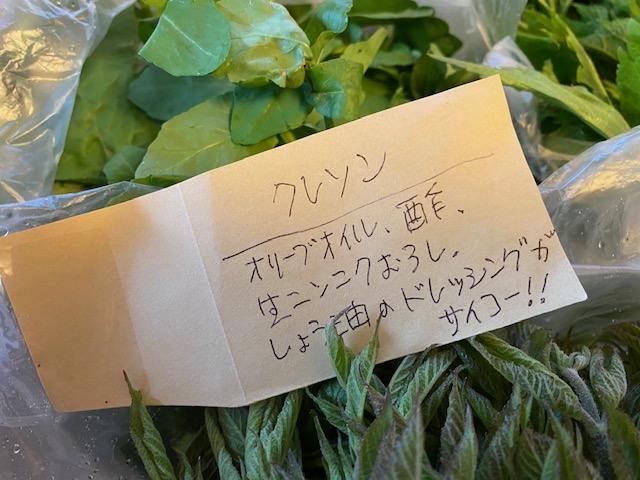 クレソン
オリーブオイル、酢、
生ニンニクむろし、
しょう油のドレッシングが
サイコー!!